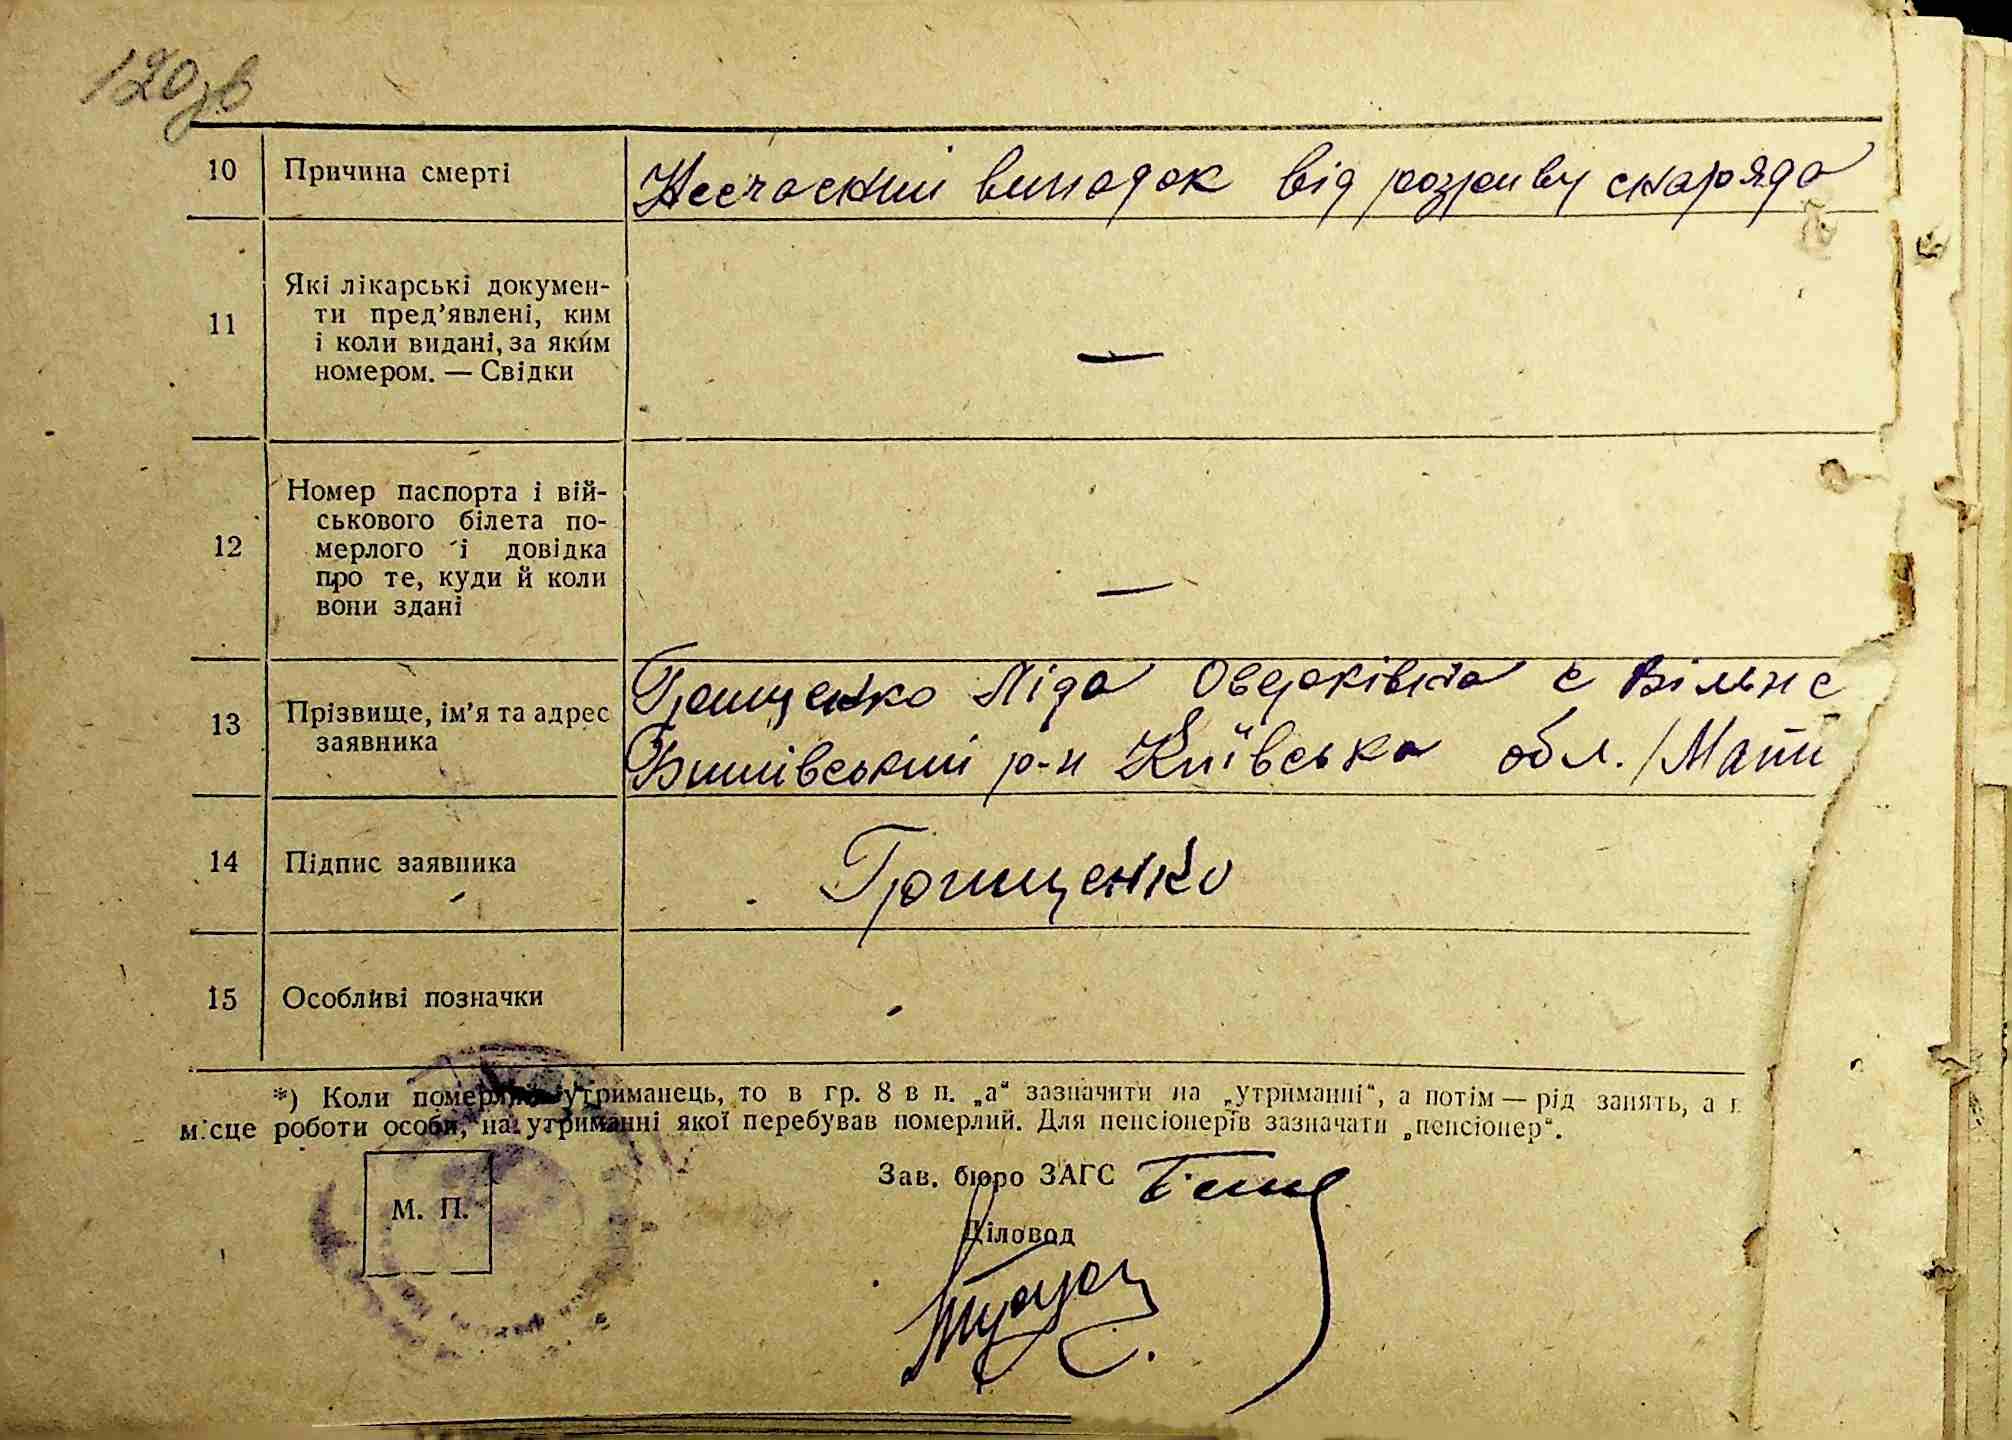 120зв
10 Причина смерті Несчасний випадок від розриву снаряда
11 Які лікарські докумен-
ти пред’явлені, ким
і коли видані, за яким
номером. — Свідки —
12 Номер паспорта і вій-
ськового білета по-
мерлого і довідка
про те, куди й коли
вони здані —
13 Прізвище, ім’я та адрес
заявника
Грищенко Ліда с Вільне
р-н Київська обл. /Мати
14 Підпис заявника Грищенко
15 Особливі позначки
*) Коли померлий утриманець, то в гр. 8 в п. „а“ зазначити на „утриманні“, а потім — рід занять, а
місце роботи особи, на утриманні якої перебував померлий. Для пенсіонерів зазначати „пенсіонер“.
Зав. бюро ЗАГС
М. П.
Діловод